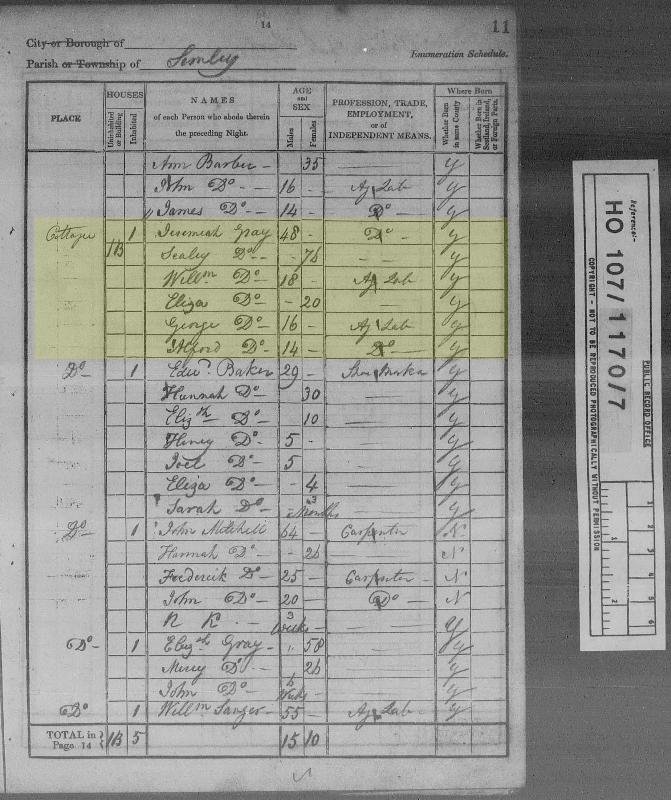 14
11
City or Borough of
Enumeration Schedule.
Parish or Township of Semley
PLACE
HOUSES
Uninhabited or Building
Inhabited
NAMES
of each Person who abode therein
the preceding Night.
AGE
and
SEX
Males
Females
PROFESSION, TRADE,
EMPLOYMENT,
or of
INDEPENDENT MEANS.
Where Born
Whether Born in same County
Whether Born in Scotland, Ireland, or Foreign Parts.
Ann Barber - 35 y
John Do - 16 - Ag Lab y
James Do - 14 - Do y
Cottages 1 Jeremiah Gray 48 - Do y
1B Sealey Do - 76 y
Willm Do 18 - Ag Lab y
Eliza Do - 20 y
George Do - 16 - Ag Lab y
Do - 14 - Do y
Do 1 Edwd Baker 29 - Shoe Maker y
Hannah Do - 30 y
Elizth Do - 10 y
Henry Do - 5 - y
Joel Do - 5 y
Eliza Do - 4 y
Sarah Do - 3 Months y
Do 1 John Mitchell 64 - Carpenter N
Hannah Do - 26 N
Frederick Do 25 - Carpenter - N
John Do - 20 - Do N
N K - 3 Weeks y
Do - 1 Elizth Gray - 58 y
Mercy Do - 26 y
John Do - 6 Weeks y
Do 1 Willm Sanger - 55 - Ag Lab y
TOTAL in Page 14 } 1B 5 15 10
Reference:-
HO 107/1170/7
PUBLIC RECORD OFFICE
COPYRIGHT - NOT TO BE REPRODUCED PHOTOGRAPHICALLY WITHOUT PERMISSION
1
2
1
2
3
4
5
6